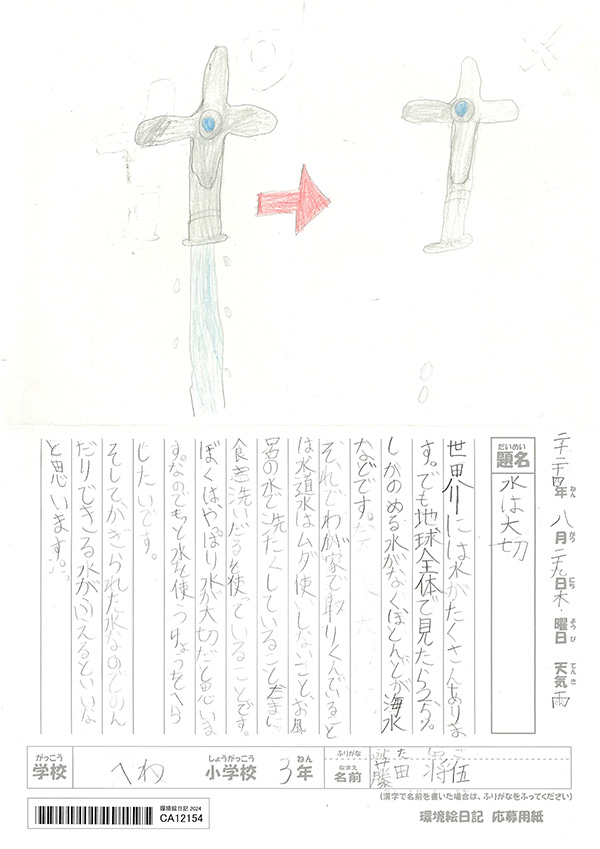 二十二四年 八月二九日 木・曜日 天気 雨
ねん がつ にち ようび てんき
だいめい
題名 水は大切
世界には水がたくさんありま
す。でも地球全体で見たら2.5%
しかのめる水がなくほとんどが海水
などです。
それでわが家で取りくんでいること
は水道水はムダ使いしないこと、お風
呂の水で洗たくしていること、
食き洗い を使っていることです。
ぼくは、やっぱり水が大切だと思いま
す。なのでもっと水を使うりょうをへら
したいです。
そしてかぎられた水なのでのん
だりできる水がふえるといいな
と思います。
がっこう しょうがっこう ねん ふりがな た ご
学校 へいわ 小学校 3年 なまえ 名前 藤田 将伍
(漢字で名前を書いた場合は、ふりがなをふってください)
環境絵日記 2024
CA12154
環境絵日記 応募用紙